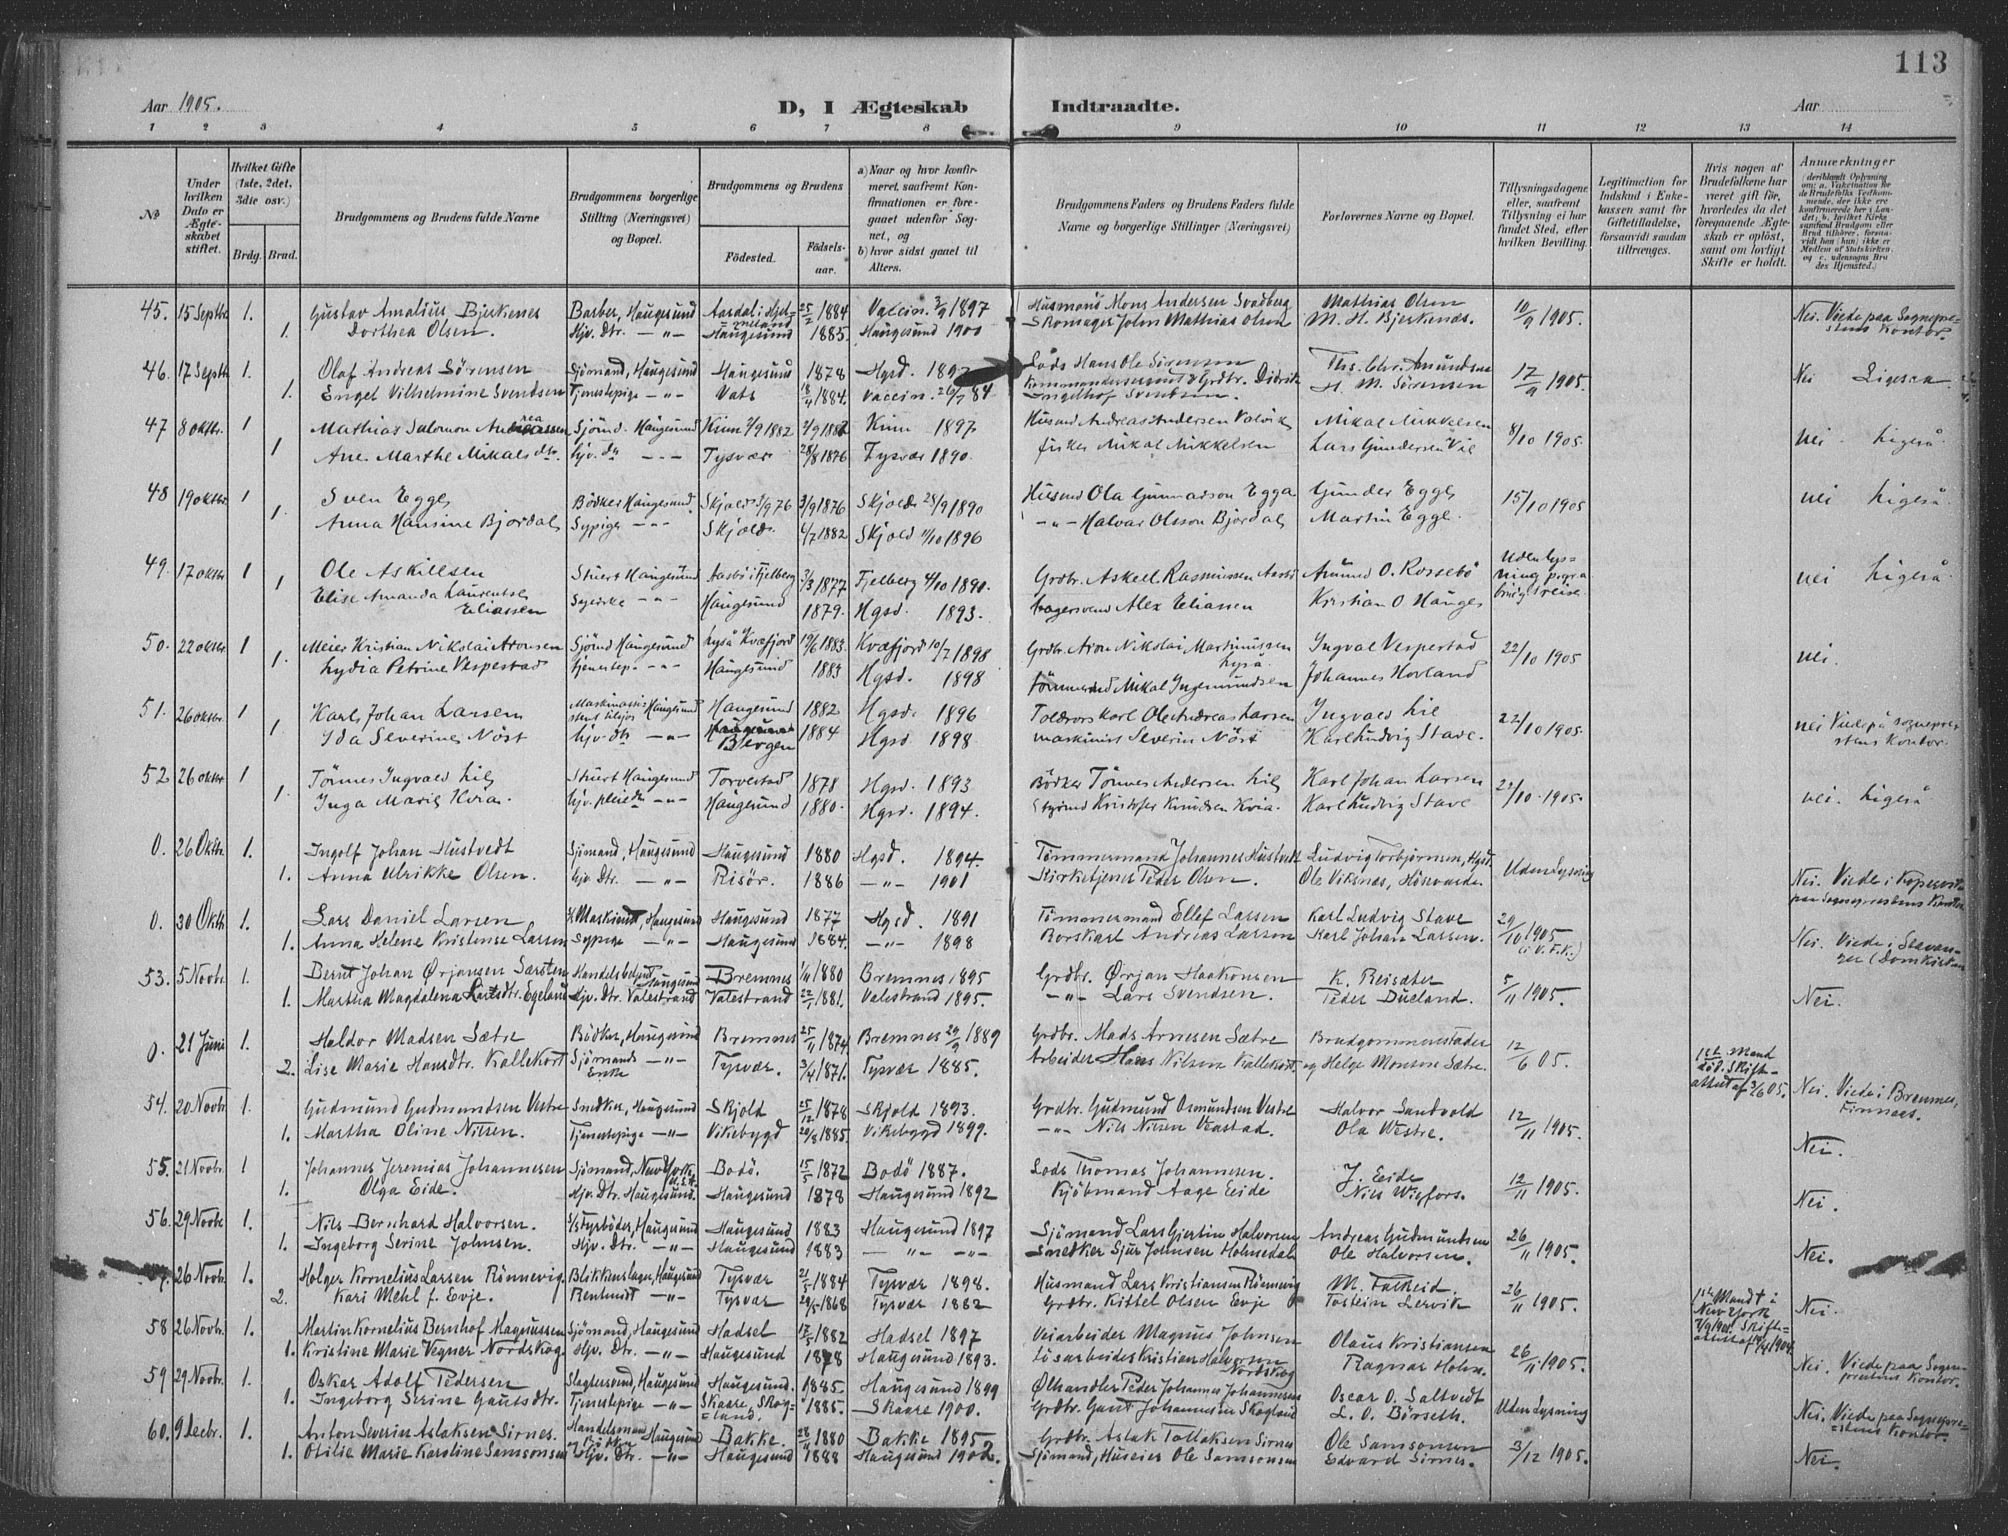 113
Aar 1905.
D, I Ægteskab Indtraadte.
Aar
1 2 3 4 5 6 7 8 9 10 11 12 13 14
No
Under hvilken Dato er Ægteskabet stiftet.
Hvilket Gifte (1ste, 2det, 3die osv.)
Brdg. Brud.
Brudgommens og Brudens fulde Navne
Brudgommens borgerlige Stilling (Næringsvei) og Bopæl.
Brudgommens og Brudens
Födested.
Födselsaar.
a) Naar og hvor konfirmeret, saafremt Konfirmationen er foregaaet udenfor Sognet, og
b) hvor sidst gaaet til Alters.
Brudgommens Faders og Brudens Faders fulde Navne og borgerlige Stillinger (Næringsvei)
Forlovernes Navne og Bopæl.
Tillysningsdagene, eller, saafremt Tillysning ei har fundet Sted, efter hvilken Bevilling.
Legitimation for Indskud i Enkekassen samt for Giftetilladelse, forsaavidt saadan tiltrænges.
Hvis nogen af Brudefolkene har været gift för, hvorledes da det foregaaende Ægteskab er oplöst, samt om lovligt Skifte er holdt.
Anmærkninger
45. 15 Septbr. 1. Gustav Amalius Bjerkenes Barber, Haugesund 25/2 1884 Vaccin. 1897 Husmand Mons Andersen Svadberg Mathias Olsen 10/9 1905. Nei. Viede paa Sognepre-
1. Dorthea Olsen. Hjv. Dtr. —"— Haugesund 1885. Haugesund 1900 Skomager John Mathias Olsen M. H. Bjerkenæs. stens Kontor.
46. 17 Septbr 1. Olaf Andreas Sörensen Sjömand, Haugesund Haugesund 1878 Hgsd. Lods Hans Ole Sörensen Ths. Chr. Amundsen 17/9 1905. Nei Ligesaa
1. Engel Vilhelmine Svendsen Tjenestepige —"— Vats 1884. Vaccin. H. M. Sörensen
47 8 oktbr. 1 Mathias Salomon Andreassen Sjömd. Haugesund Kinn 1882 Kinn 1897 Husmd Andreas Andersen Mikal Mikkelsen 8/10 1905 nei ligeså
1 Ane Marthe Mikalsdtr. hjv. dtr Tysvær 28/8 1876 Tysvær 1890. fisker Mikal Mikkelsen Lars Gundersen
48 19 oktbr 1 Sven Egge Bödker Haugesund Skjold 3/9 1876 Skjold 28/9 1890 Husmd Ola Gunnarson Egga Gunder Egge 15/10 1905 nei ligeså
1. Anna Hansine Bjordal Sypige —"— Skjold. 6/7 1882 Skjold 1896 —"— Halvar Olsson Bjordal Martin Egge.
49. 17 oktbr 1 Ole Askillsen Stuert Haugesund Aasbö i Fjelberg 1877 Fjelberg 4/10 1890. Grdbr. Askell Rasmussen Aasbö Amund O. Rossebö Uden lys- nei ligeså
1 Elise Amanda Laurentse Eliassen Syerske —"— Haugesund 1879. Hgsd. 1893. Alex Eliassen Kristian O Hauge ning
50. 22 oktbr 1 Meier Kristian Nikolai Aronsen Sjömd Haugesund Kvæfjord 19/6 1883. Kvæfjord 10/7 1898 Grdbr. Aron Nikolai Martinussen Ingval Vespestad 22/10 1905 nei.
1. Lydia Petrine Vespestad tjenestep. —"— Haugesund 1883 Hgsd. 1898 Tömmermd Mikal Ingemundsen Johannes Hovland
51. 26 oktbr 1 Karl Johan Larsen Haugesund Haugesund 1882 Hgsd. 1896 Ole Andreas Larsen Ingvald Lie 22/10 1905. nei Viede på sognepre-
1 Ida Severine Nöst hjv. dtr —"— Bergen 1884 Hgsd. 1898. maskinist Severin Nöst Karl Ludvig Stave. stens kontor.
52 26 oktbr. 1 Tönnes Ingvald Lie Stuert Haugesund Torvestad 1878 Hgsd. 1893 Bödker Tönnes Andersen Lie Karl Johan Larsen 22/10 1905. nei. ligeså
1. Inga Marie Kvia. —"— Haugesund 1880. Hgsd. 1894. Kristofer Knudsen Kvia. Karl Ludvig Stave
0. 26 Oktbr. 1. Ingolf Johan Hustvedt Sjömand, Haugesund Haugesund 1880 Hgsd. 1894. Tömmermand Johannes Hustvedt Ludvig Torbjörnsen, Hgsd. Uden lysning Nei. Viede i Kopervik
1. Anna Ulrikke Olsen. hjv. Dtr. —"— Risör. 1886 —"— 1901 Kirketjener Peder Olsen. Ole Viksnæs, paa Sogneprestens Kontor
0. 30 Oktbr. 1. Lars Daniel Larsen Haugesund Haugesund 1877 Hgsd. 1891 Tömmermand Ellef Larsen Karl Ludvig Stave 29/10 1905 Nei. Viede i Stavan-
1. Anna Helene Kristense Larsen Sypige —"— Haugesund 1884. —"— 1898 Andreas Larsen Karl Johan Larsen. (i V.F.K.) ger (Domkirken
53. 5 Novbr. 1. Bernt Johan Ørjansen Særsten Handelsbetjent Haugesund Bremnes 1880 Bremnes 1895 Grdbr. Ørjan Haakonsen K. Reisæter 5/11 1905. Nei.
1. Martha Magdalena Larsdtr. Egeland Hjv. Dtr. Valestrand Valestrand 1881. Valestrand 1895. —"— Lars Svendsen. Peder Dueland.
0. 21 Juni 1. Haldor Madsen Sætre Bödker, Haugesund Bremnes 25/11 1874. Bremnes 29/9 1889 Grdbr. Mads Arnesen Sætre Brudgommens fader 12/6 05. 1ste Mand död. Skifte-
2. Lise Marie Hansdtr. Kallekort Sjömands Enke —"— Tysvær. 3/4 1871. Tysvær 1885. Arbeider Hans Nilsen Kallekort. og Helge Monsen Sætre. attest af 3/6 05. Nei. Viede i Bremnes, Finnaas.
54. 20 Novbr. 1. Gudmund Gudmundsen Vestre Snedker, Haugesund Skjold 25/12 1878 Skjold 1893. Grdbr. Gudmund Osmundsen Vestre Halvor Sandvold 12/11 1905. Nei.
1. Martha Oline Nilsen. Tjenestepige —"— Vikebygd 29/8 1885. Vikebygd 1899. —"— Nils Nilsen Ola Westre.
55. 21 Novbr. 1 Johannes Jeremias Johannesen Sjömand, New York Bodö. 15/5 1872 Bodö 1887. Lods Thomas Johannesen. J. Eide 12/11 1905. Nei.
1. Olga Eide. Hjv. Dtr. Haugesund. Haugesund 1878 Haugesund 1892 Kjöbmand Aage Eide Nils Wigfors.
56. 29 Novbr 1. Nils Bernhard Halvorsen. Haugesund Haugesund 1883 Haugesund 1897 Sjömand Lars Gjertin Halvorsen Andreas Gudmundsen 26/11 1905. Nei.
1. Ingeborg Serine Johnsen. Hjv. Dtr. —"— Haugesund 1883 —"— —"— Snedker Sjur Johnsen Holmedal Ole Halvorsen.
26 Novbr. 1. Holger Kornelius Larsen Rönnevig Blikkenslager, Haugesund Tysvær 21/5 1884 Tysvær 1898. Husmand Lars Kristiansen Rönnevig M. Falkeid. 26/11 1905. 1ste Mand † i New York Nei.
2. Kari Mehl f. Evje. —"— Tysvær 1868 Tysvær 1882 Grdbr. Kittel Olsen Evje Tostein Lervik
58 26 Novbr. 1. Martin Kornelius Bernhof Magnussen Sjömand, Haugesund Hadsel 17/5 1882 Hadsel 1897 Veiarbeider Magnus Johnsen Olaus Kristiansen 26/11 1905. Nei. Viede paa Sogne-
1. Kristine Marie Vegner Nordskog. Hjv. Dtr. —"— Haugesund 1878 Haugesund 1893. Kristian Halvorsen Nordskog Ragnar Holm. prestens Kontor.
59 29 Novbr. 1. Oskar Adolf Pedersen Slagtersvend, Haugesund Haugesund. 1885. Haugesund 1899 Ølhandler Peder Johannes Johannesen Oscar O. Saltvedt Uden lysning Nei. Viede paa Sognepre-
1. Ingeborg Serine Gautsdtr. Tjenestepige —"— Skaare, Skogland. 1885. Skaare 1900. Grdbr. Gaut Johannesen Skogland L. O. Börseth. stens Kontor.
60. 9 Decbr. 1. Anton Severin Aslaksen Sirnes. Handelsmand Haugesund Bakke 28/11 1880 Bakke 1895 Grdbr. Aslak Tollaksen Sirnes Ole Samsonsen 3/12 1905. Nei.
1. Otilie Marie Karoline Samsonsen Hjv. Dtr. —"— Haugesund 1888 Haugesund 1902. Sjömand, Huseier Ole Samsonsen Edvard Sirnes.